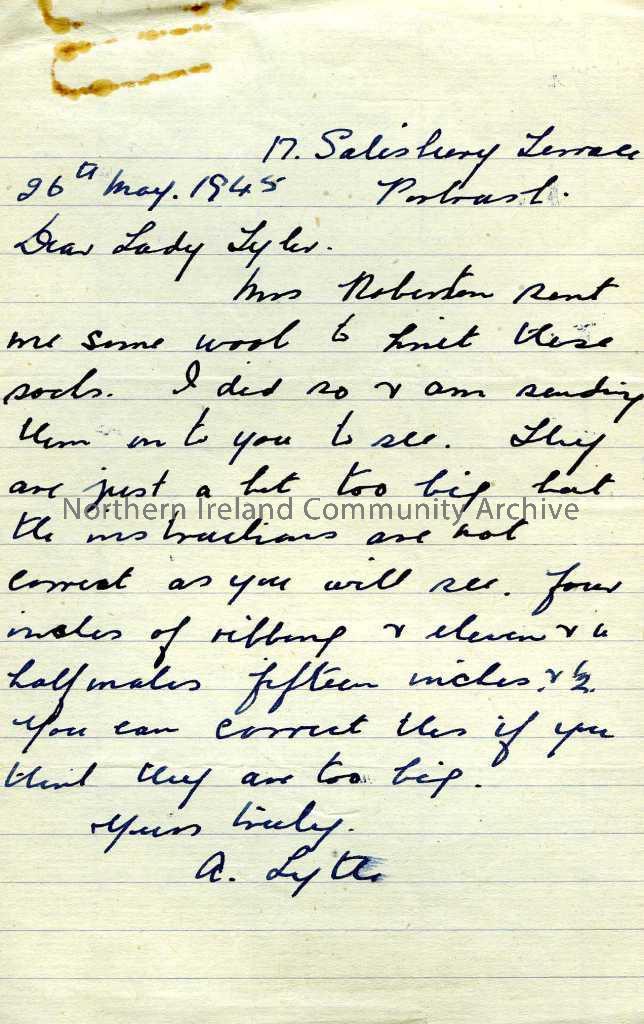 17. Salisbury Terrace
26th May. 1945 Portrush.
Dear Lady Tyler.
Mrs Roberton sent
me some wool to knit these
socks. I did so & am sending
them on to you to see. They
are just a bit too big but
Northern Ireland Community Archive
the instructions are not
correct as you will see. four
inches of ribbing & eleven & a
half makes fifteen inches & ½.
You can correct this if you
think they are too big.
Yours truly.
A. Lytle